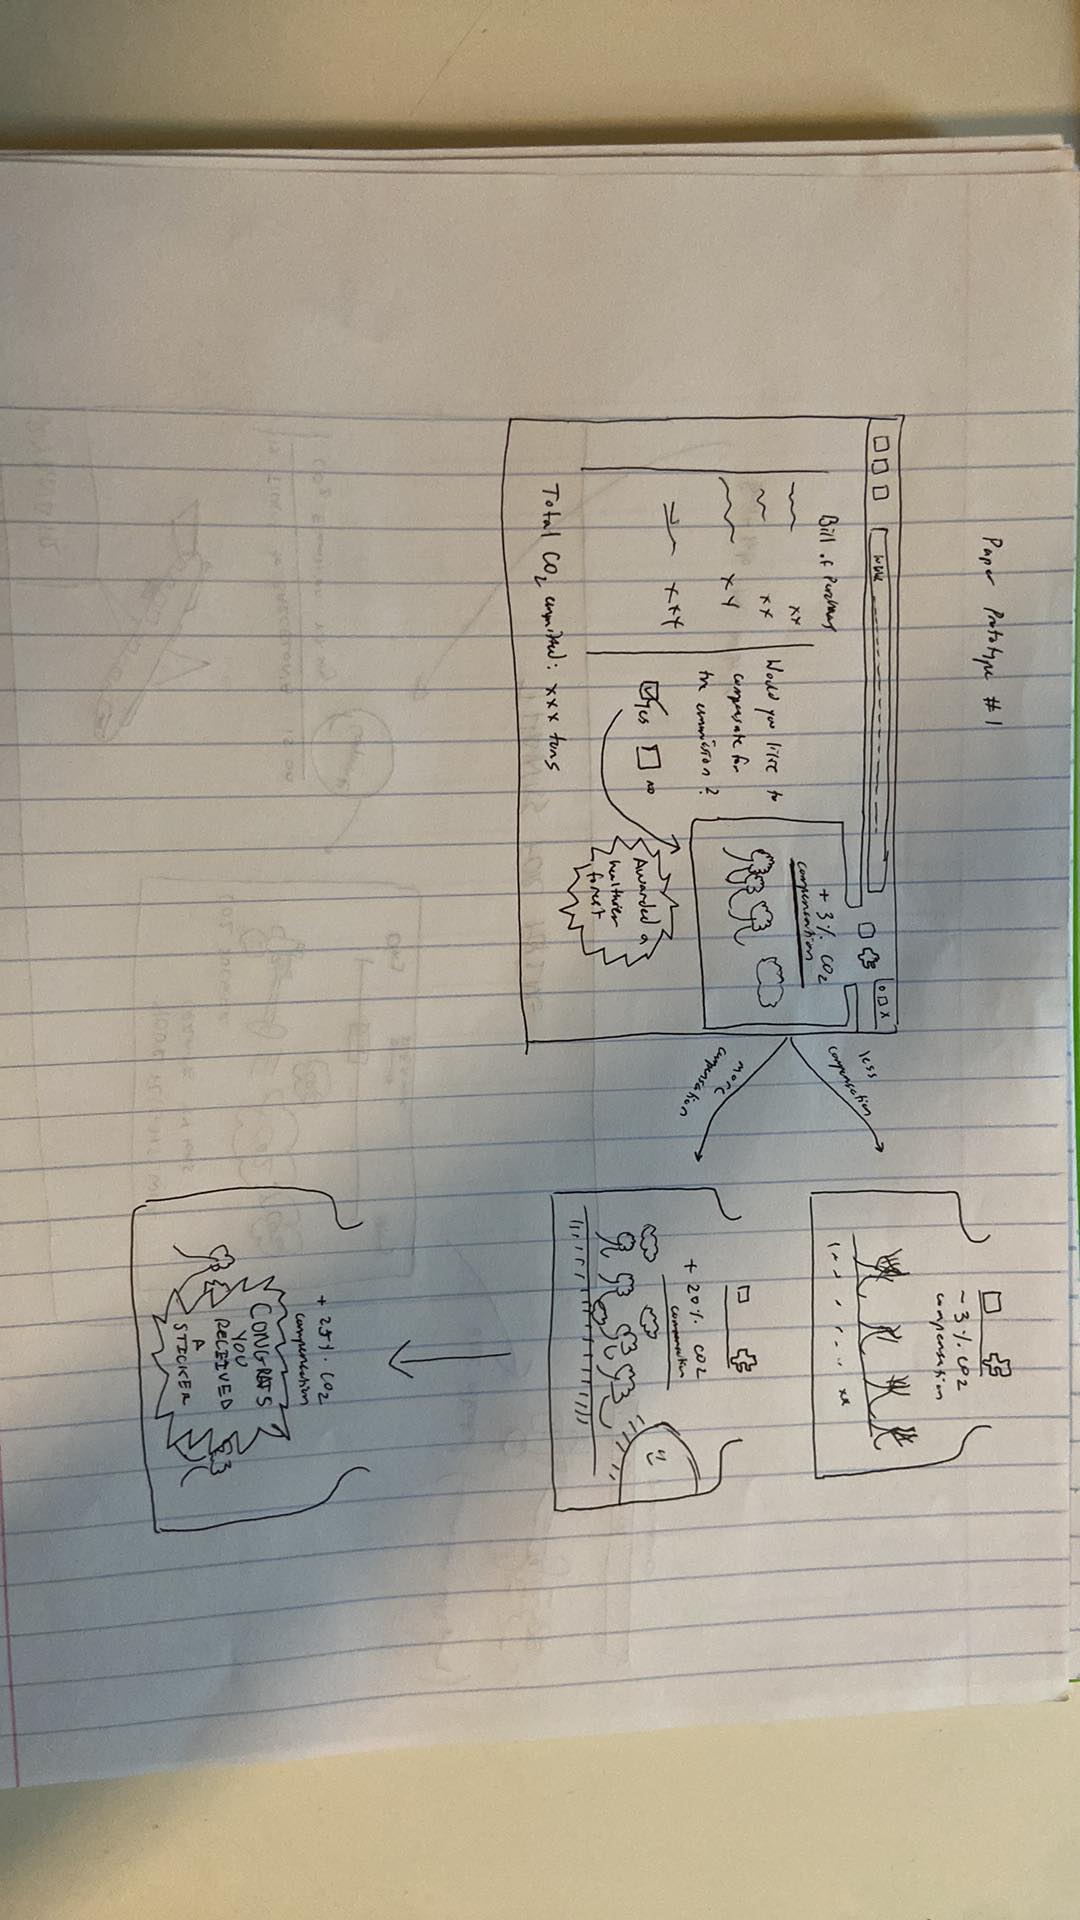 Paper Prototype #1
WWW
Bill of Purchases
xx
xx
xy
xxy
Would you like to
compensate for
the emmission?
Yes
NO
Total CO2 emmitted: xxx tons
+ 3% CO2
compensation
Awarded a
healthier
forest
less
compensation
more
compensation
- 3% CO2
compensation
+ 20% CO2
compensation
+ 25% CO2
compensation
CONGRATS
YOU
RECEIVED
A
STICKER